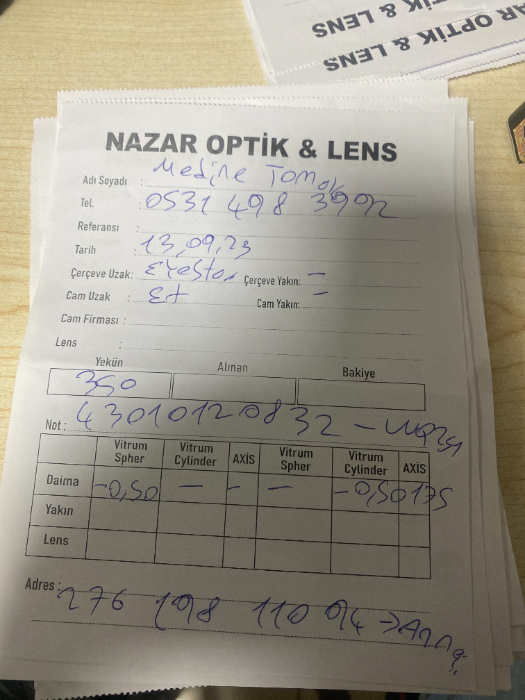 TİK & LENS
AR OPTİK & LENS
NAZAR OPTİK & LENS
Adı Soyadı : Medine Tomak
Tel. : 0531 498 3992
Referansı :
Tarih : 13,09,23
Çerçeve Uzak: Eyestar Çerçeve Yakın: —
Cam Uzak : Ex Cam Yakın: —
Cam Firması :
Lens :
Yekün Alınan Bakiye
350
Not : 43010120832 —
Vitrum Spher Vitrum Cylinder AXİS Vitrum Spher Vitrum Cylinder AXİS
Daima -0,50 — — — -0,50 175
Yakın
Lens
Adres : 276 198 110 94 →